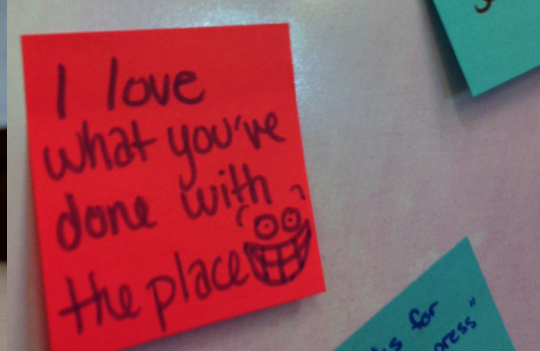 I love
what you've
done with
the place
for